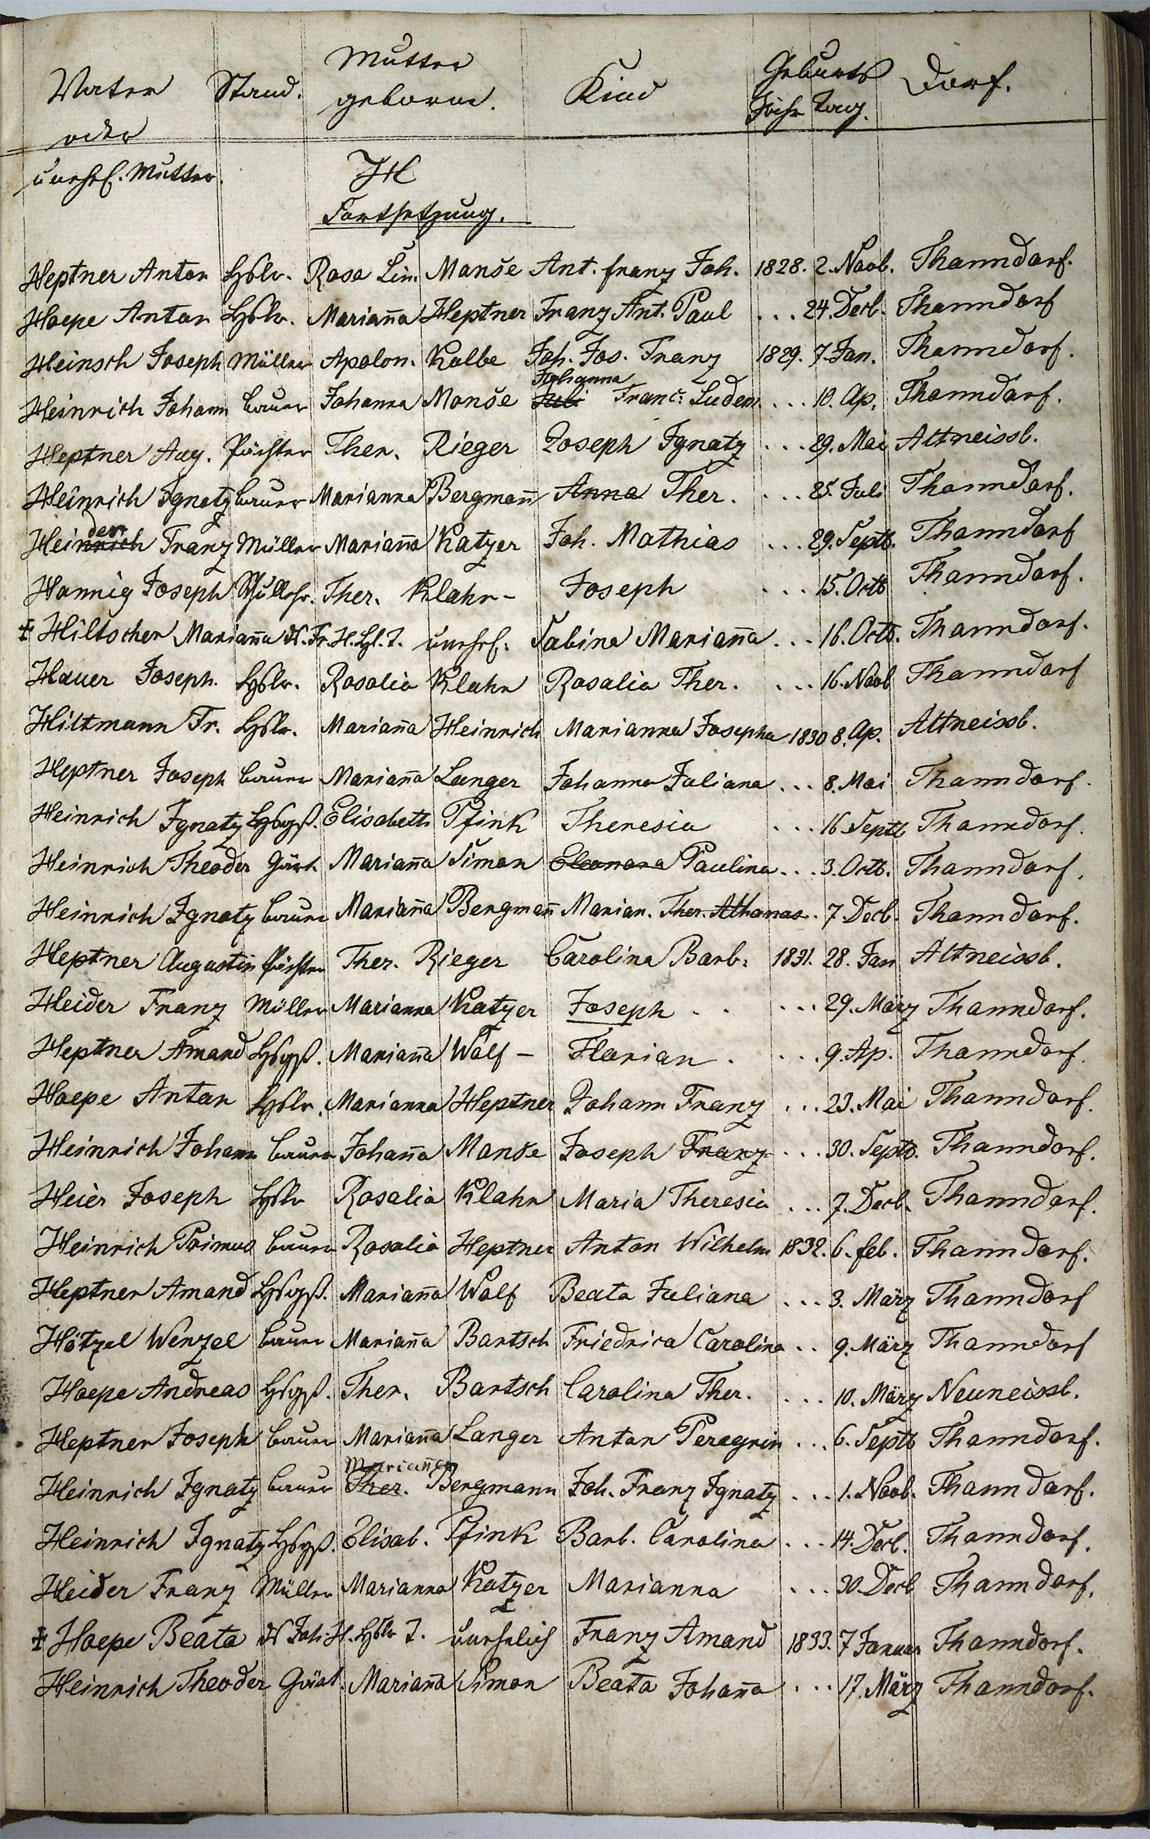 Vater Stand. Mutter Kind Geburts Dorf.
oder geborne. Jahr Tag.
unehl. Mutter.
H
Fortsetzung.
Heptner Anton Hslr. Rosa Lim. Manše Ant. franz Joh. 1828. 2. Novb. Thanndorf.
Hoepe Anton Hslr. Mariana Heptner Franz Ant. Paul ... 24. Decb. Thanndorf
Heinsch Joseph Müller Apolon. Kolbe Joh. Jos. Franz 1829. 7. Jan. Thanndorf.
Heinrich Johann bauer Johanna Monše Franc. Ludem. ... 10. Ap. Thanndorf.
Heptner Aug. Pächter Ther. Rieger Joseph Ignatz ... 29. Mai Altneissb.
Heinrich Ignatz bauer Marianna Bergmann Anna Ther. ... 25. Juli Thanndorf.
der
Heinrich Franz Müller Marianna Katzer Joh. Mathias ... 29. Septb. Thanndorf
Hannig Joseph Schullhr. Ther. Klahr – Joseph ... 15. Octb Thanndorf.
Hiltscher Marianna d. Fr. H. Hsl. T. unehl. Sabina Marianna ... 16. Octb. Thanndorf.
Hauer Joseph. Hslr. Rosalia Klahr Rosalia Ther. ... 16. Novb Thanndorf
Hiltmann Fr. Hslr. Marianna Heinrich Marianna Josepha 1830 8. Ap. Altneissb.
Heptner Joseph bauer Marianna Langer Johanna Juliana ... 8. Mai Thanndorf.
Heinrich Ignatz Hsgß. Elisabeth Pfink Theresia ... 16. Septb Thanndorf.
Heinrich Theoder Gärt. Marianna Simon Eleonora Paulina ... 3. Octb. Thanndorf.
Heinrich Ignatz bauer Marianna Bergmann Marian. Ther. Athanas. .. 7. Decb. Thanndorf.
Heptner Augustin Pächter Ther. Rieger Carolina Barb. 1831. 28. Jan Altneissb.
Heider Franz Müller Marianna Katzer Joseph . . ... 29. März Thanndorf.
Heptner Amand Hsgß. Marianna Wolf – Florian . ... 9. Ap. Thanndorf.
Hoepe Anton Hslr. Marianna Heptner Johann Franz ... 23. Mai Thanndorf.
Heinrich Johann bauer Johanna Monše Joseph Franz ... 30. Septb. Thanndorf.
Heier Joseph Hslr Rosalia Klahr Maria Theresia ... 7. Decb. Thanndorf.
Heinrich Primus bauer Rosalia Heptner Anton Wilhelm 1832. 6. feb. Thanndorf.
Heptner Amand Hsgß. Marianna Wolf Beata Juliana ... 3. März Thanndorf
Hötzel Wenzel bauer Marianna Bartsch Friedrica Carolina .. 9. März Thanndorf
Hoepe Andreas Hsgß. Ther. Bartsch Carolina Ther. ... 10. März Neuneissb.
Heptner Joseph bauer Marianna Langer Anton Peregrin ... 6. Septb Thanndorf.
Marianna
Heinrich Ignatz bauer Ther. Bergmann Joh. Franz Ignatz ... 1. Novb. Thanndorf.
Heinrich Ignatz Hsgß. Elisab. Pfink Barb. Carolina ... 14. Decb. Thanndorf.
Heider Franz Müller Marianna Katzer Marianna ... 30. Decb Thanndorf.
Hoepe Beata d Joh. H. Hslr T. unehelich Franz Amand 1833. 7 Januar Thanndorf.
Heinrich Theoder Gärt. Marianna Simon Beata Johanna ... 17. März Thanndorf.